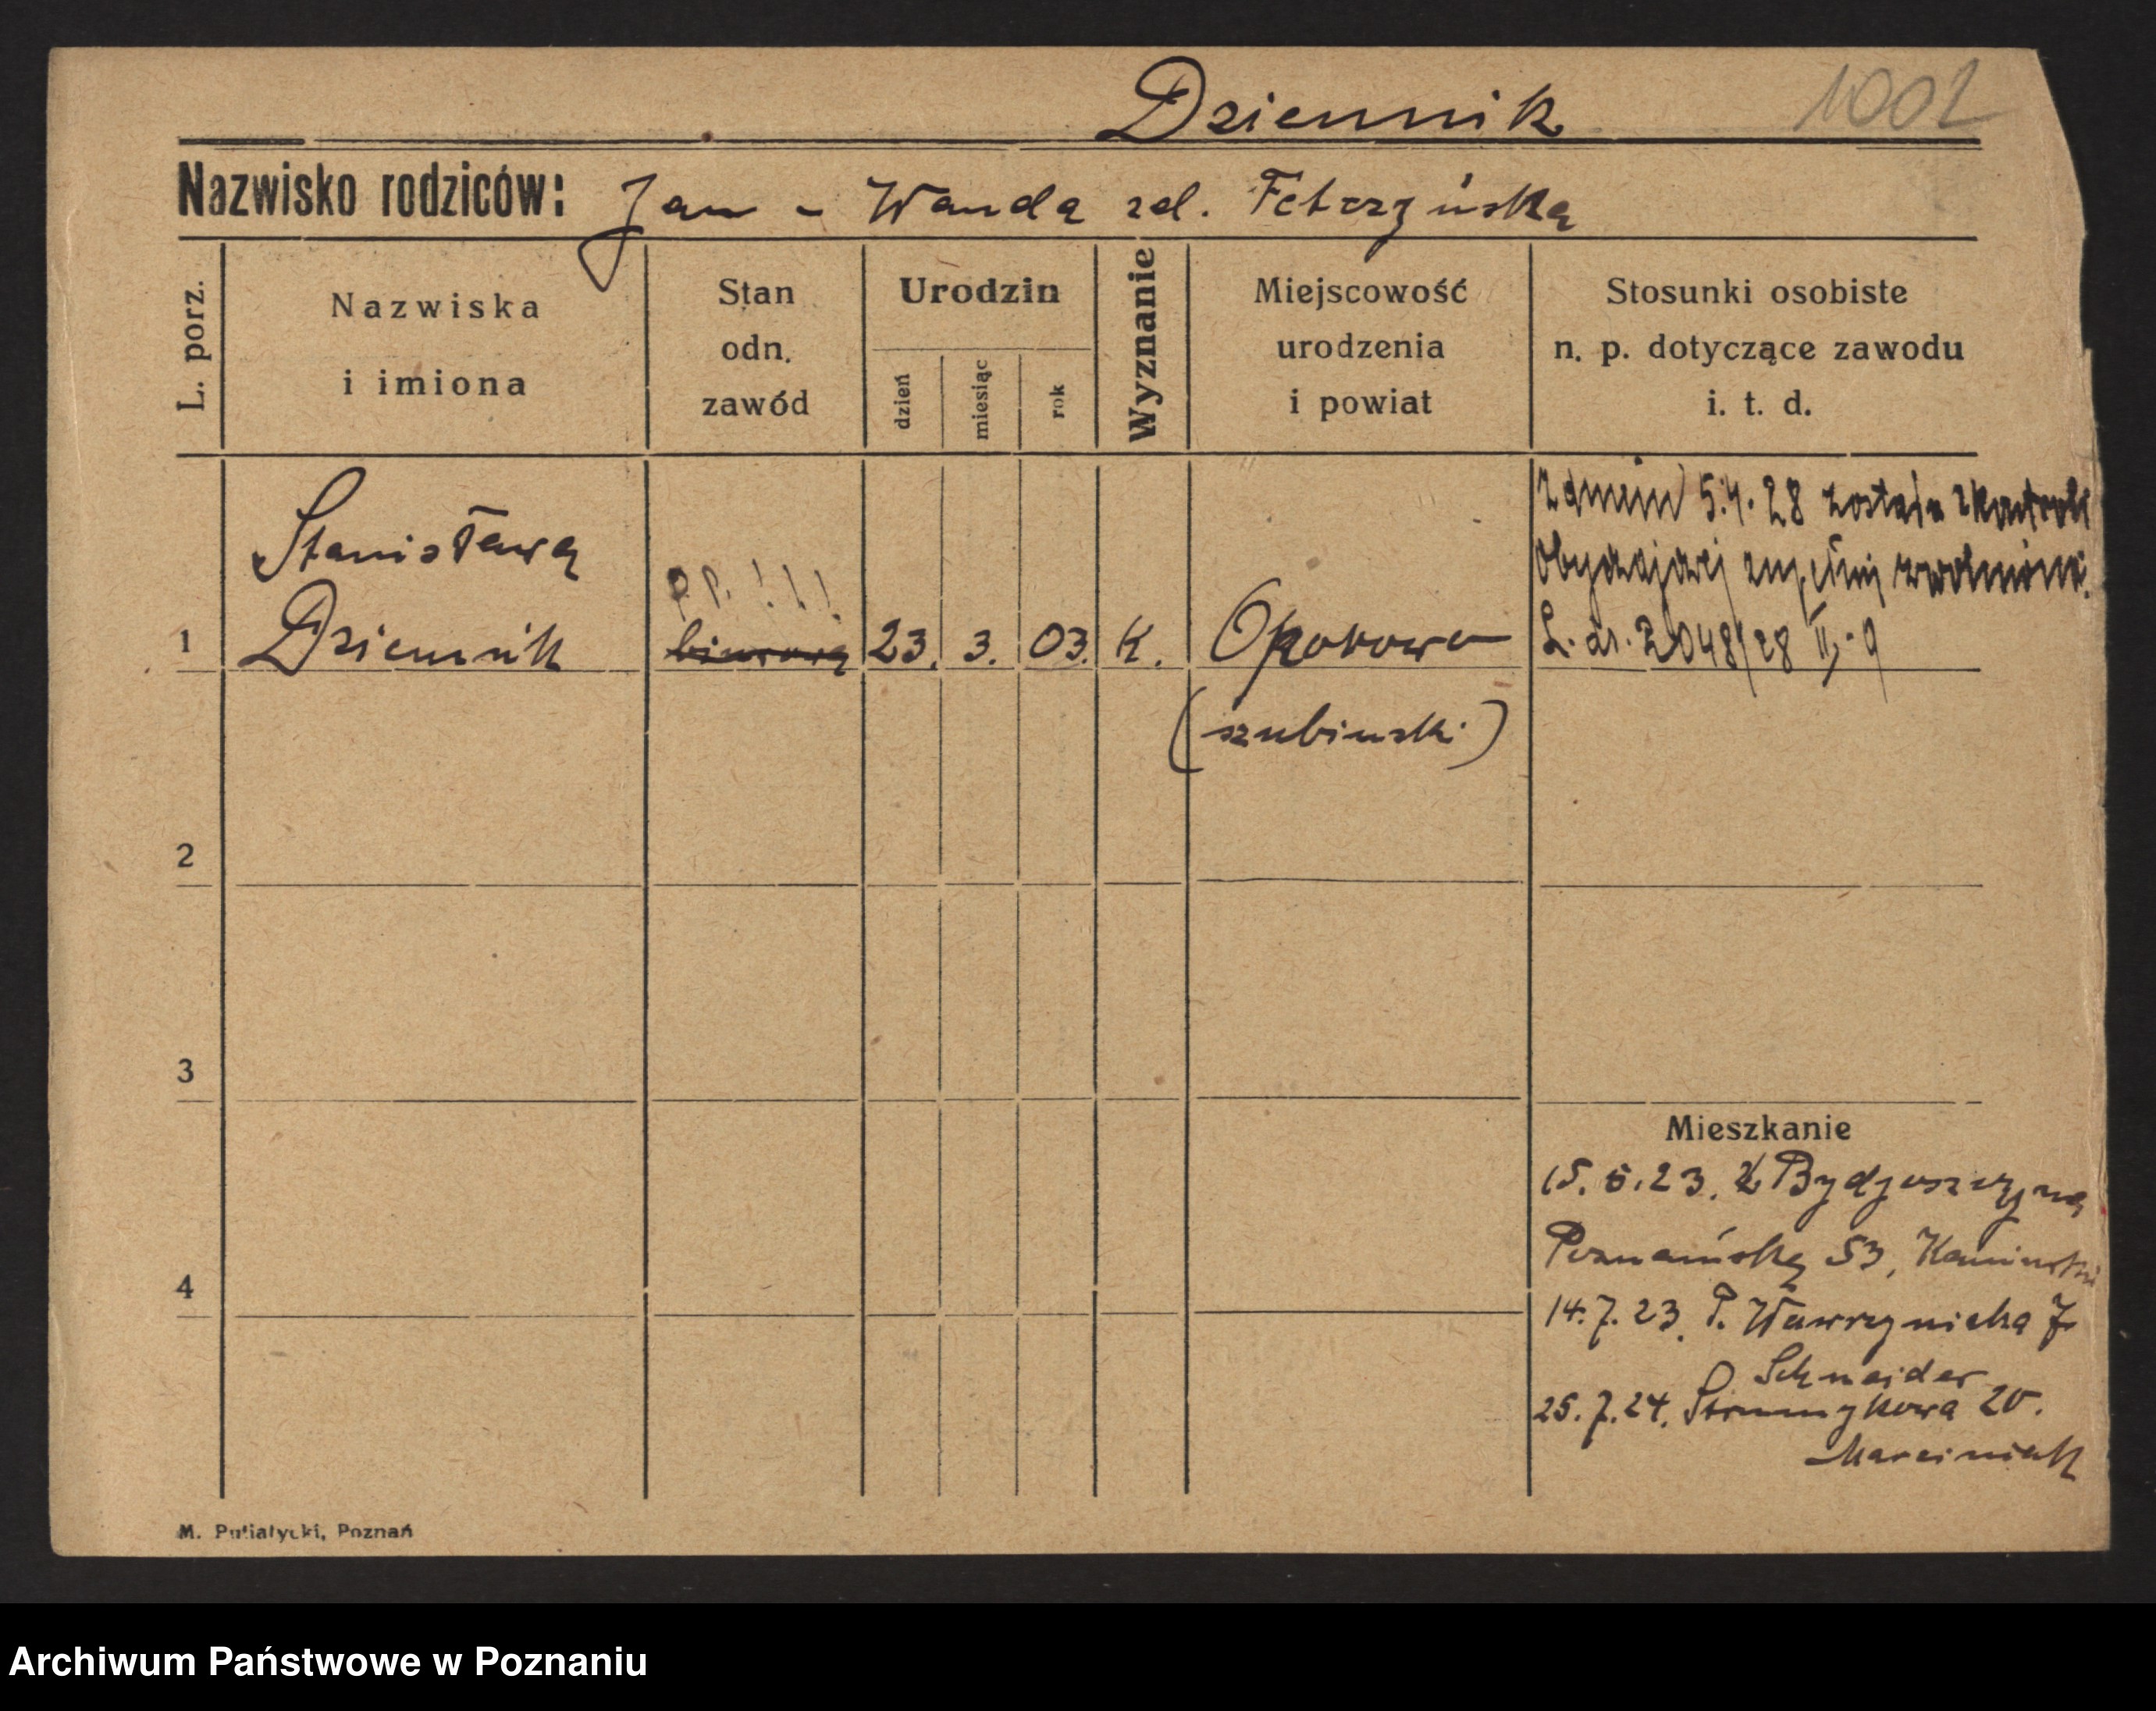 Dziennik 1002
Nazwisko rodziców: Jan - Wanda zd.
L. porz.
Nazwiska
i imiona
Stan
odn.
zawód
Urodzin
dzień
miesiąc
rok
Wyznanie
Miejscowość
urodzenia
i powiat
Stosunki osobiste
n. p. dotyczące zawodu
i. t. d.
1
Stanisława
Dziennik
P.P. !!!
biurowa
23. 3. 03. K.
Oporowo
(szubinski)
5.4.28 została z kontroli
obyczajowej zupełnie
2048/28 II,-9
2
3
4
Mieszkanie
15. 5. 23. z Bydgoszczy na
Poznańską 53, Kaminski
14. 7. 23. P. Wawrzyniaka 7
Schneider
25. 7. 24. Strumykowa 20.
Marciniak
M. Putiatycki, Poznań
Archiwum Państwowe w Poznaniu